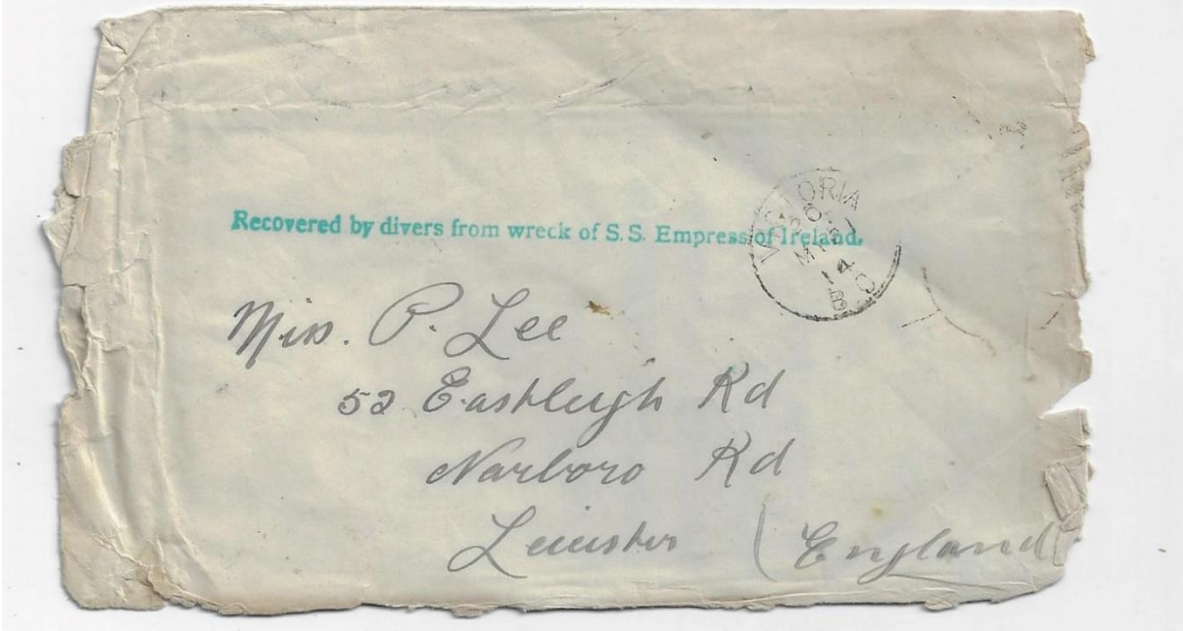 Recovered by divers from wreck of S. S. Empress of Ireland.
VICTORIA
MY
14
B C
Miss. P. Lee
52 Eastleigh Rd
Narboro Rd
Leicester (England